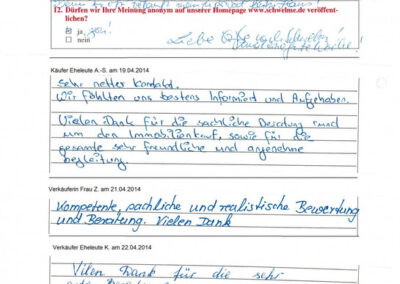 12. Dürfen wir Ihre Meinung anonym auf unserer Homepage www.schwelme.de veröffent-
lichen?
ja
nein
Liebe
Käufer Eheleute A.-S. am 19.04.2014
Sehr netter Kontakt.
Wir fühlten uns bestens Informiert und Aufgehoben.
Vielen Dank für die sachliche Beratung rund
um den Immobilienkauf, sowie für die
gesamte sehr freundliche und angenehme
begleitung.
Verkäuferin Frau Z. am 21.04.2014
Kompetente, sachliche und realistische Bewertung
und Beratung. Vielen Dank
Verkäufer Eheleute K. am 22.04.2014
Vilen Dank für die sehr